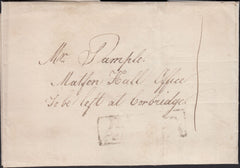 Mr. Pumple
Matfen Hall Office
To be left at Corbridge